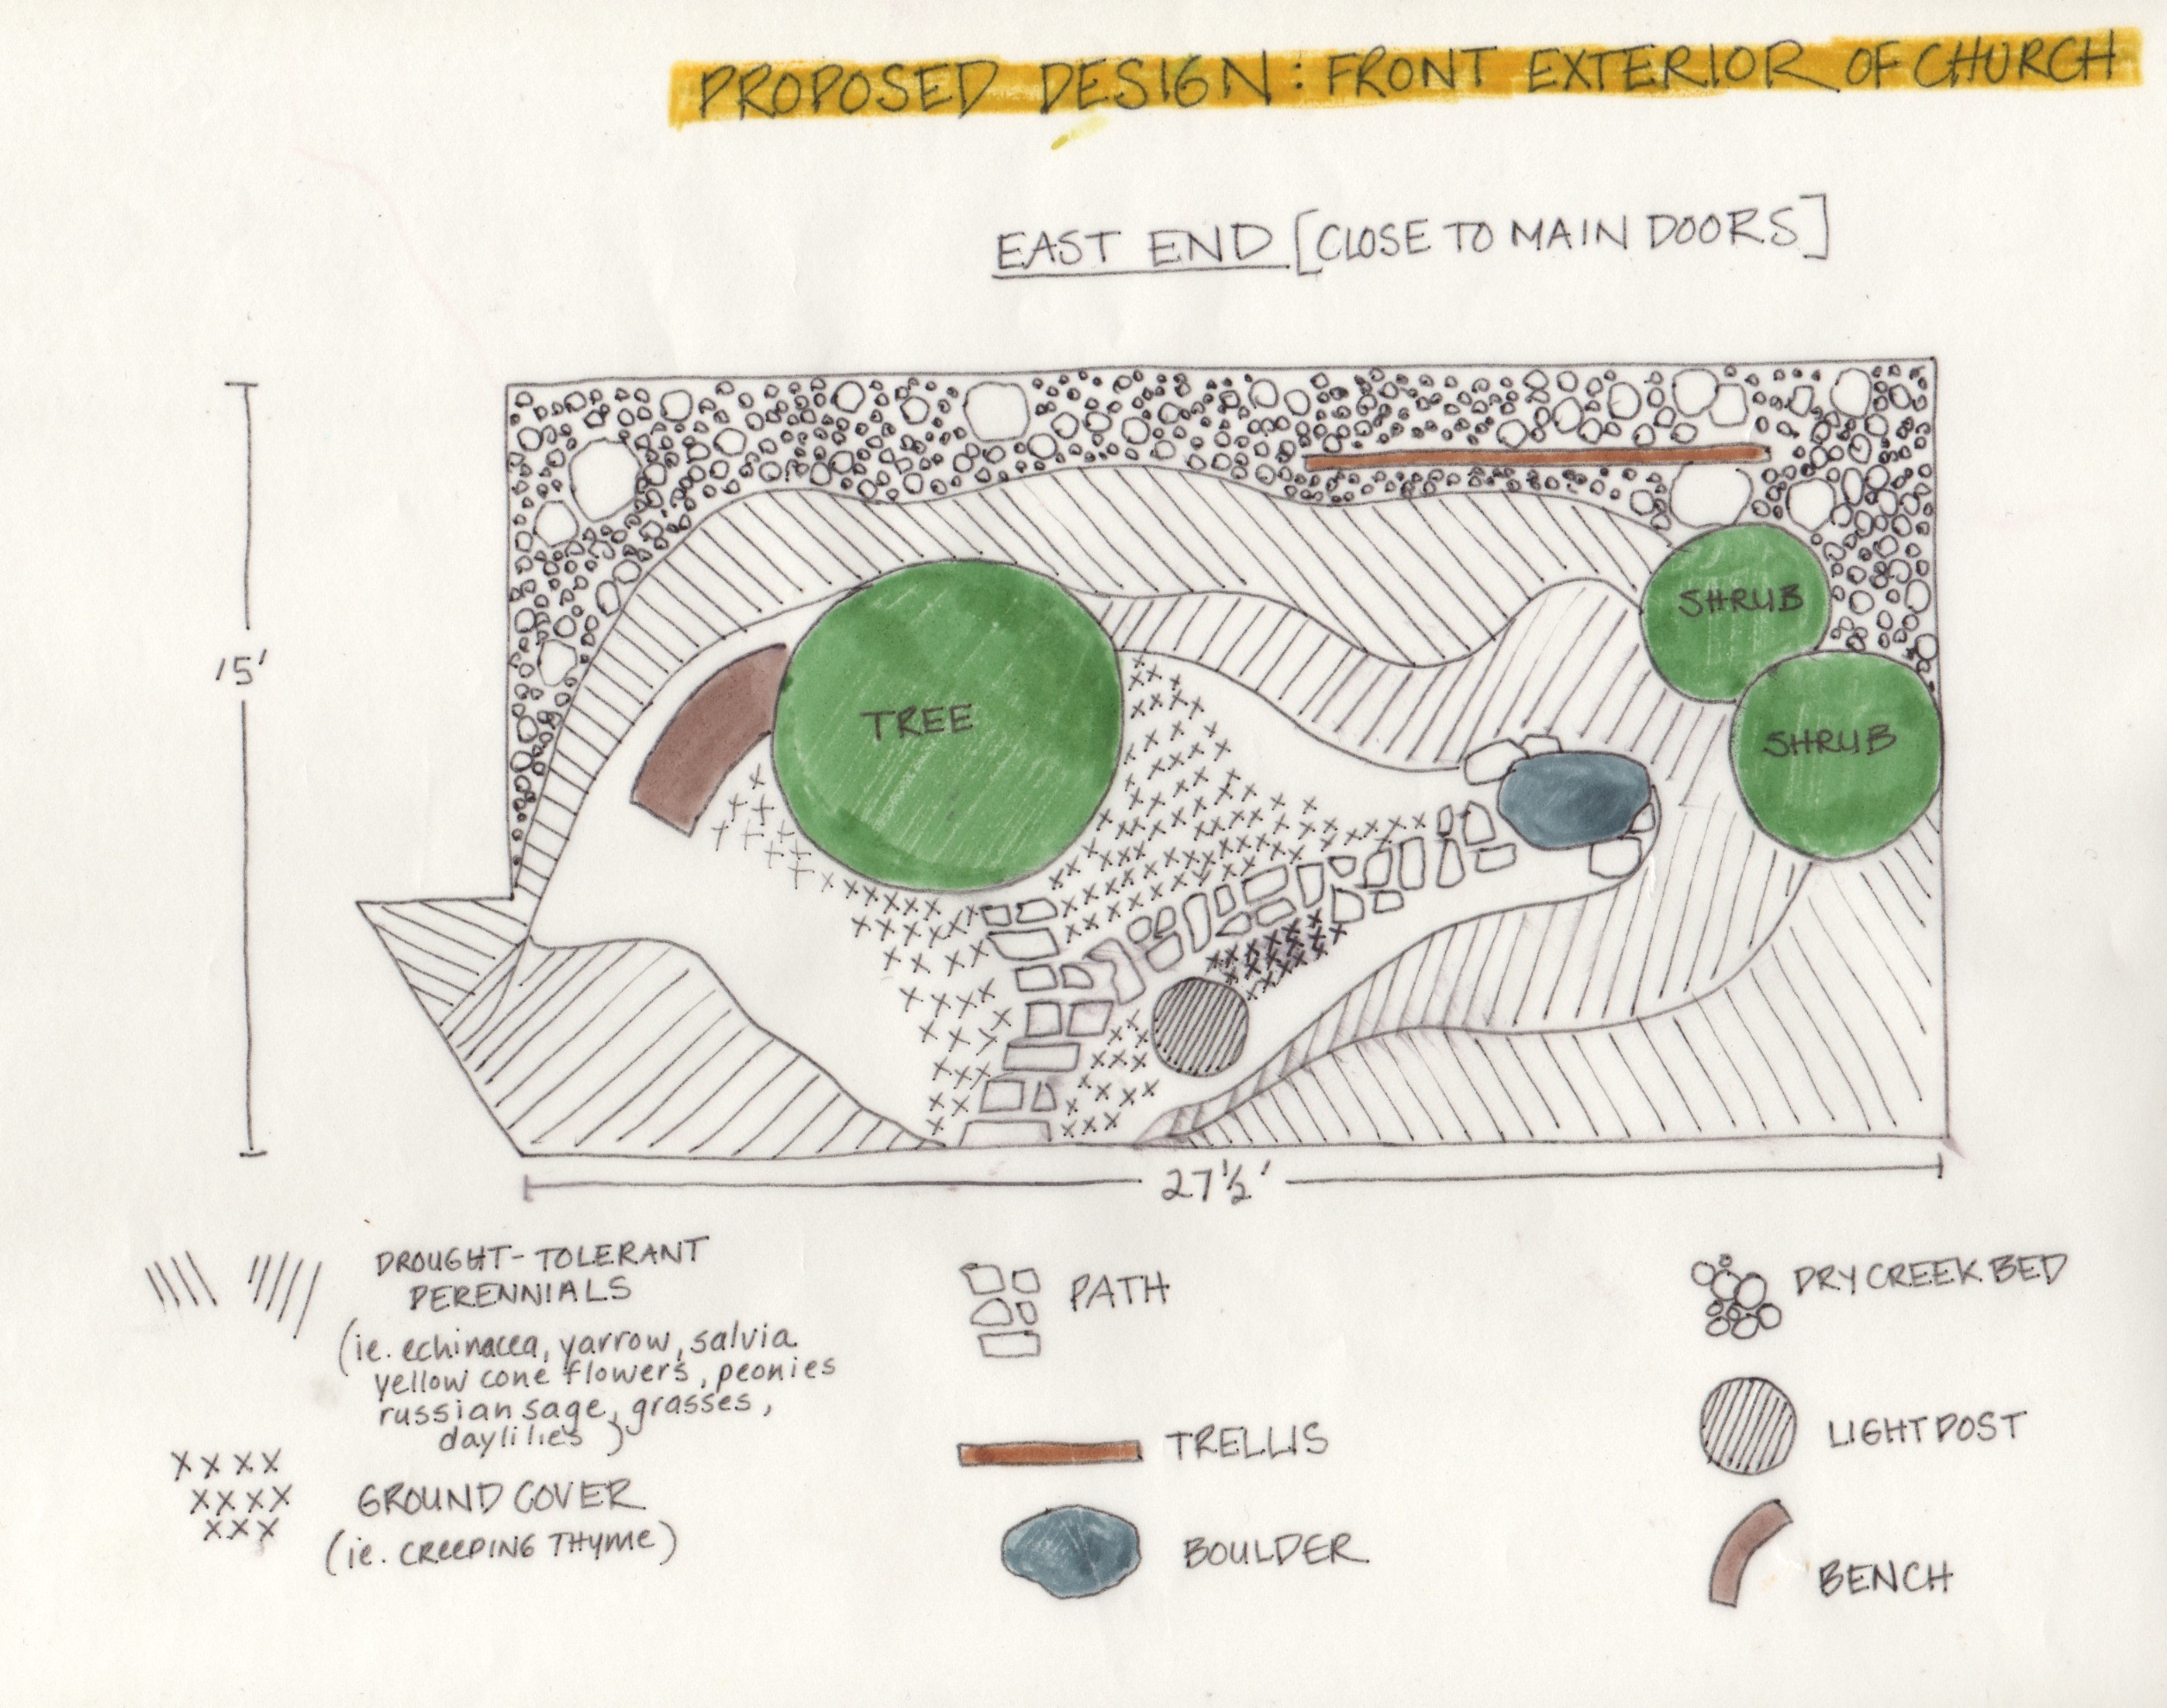 PROPOSED DESIGN: FRONT EXTERIOR OF CHURCH
EAST END [CLOSE TO MAIN DOORS]
15'
SHRUB
TREE
SHRUB
27½'
DROUGHT-TOLERANT
PERENNIALS
(ie. echinacea, yarrow, salvia
yellow cone flowers, peonies
russian sage, grasses,
daylilies)
XXXX
XXXX
XXX
GROUND COVER
(ie. CREEPING THYME)
PATH
TRELLIS
BOULDER
DRY CREEK BED
LIGHT POST
BENCH